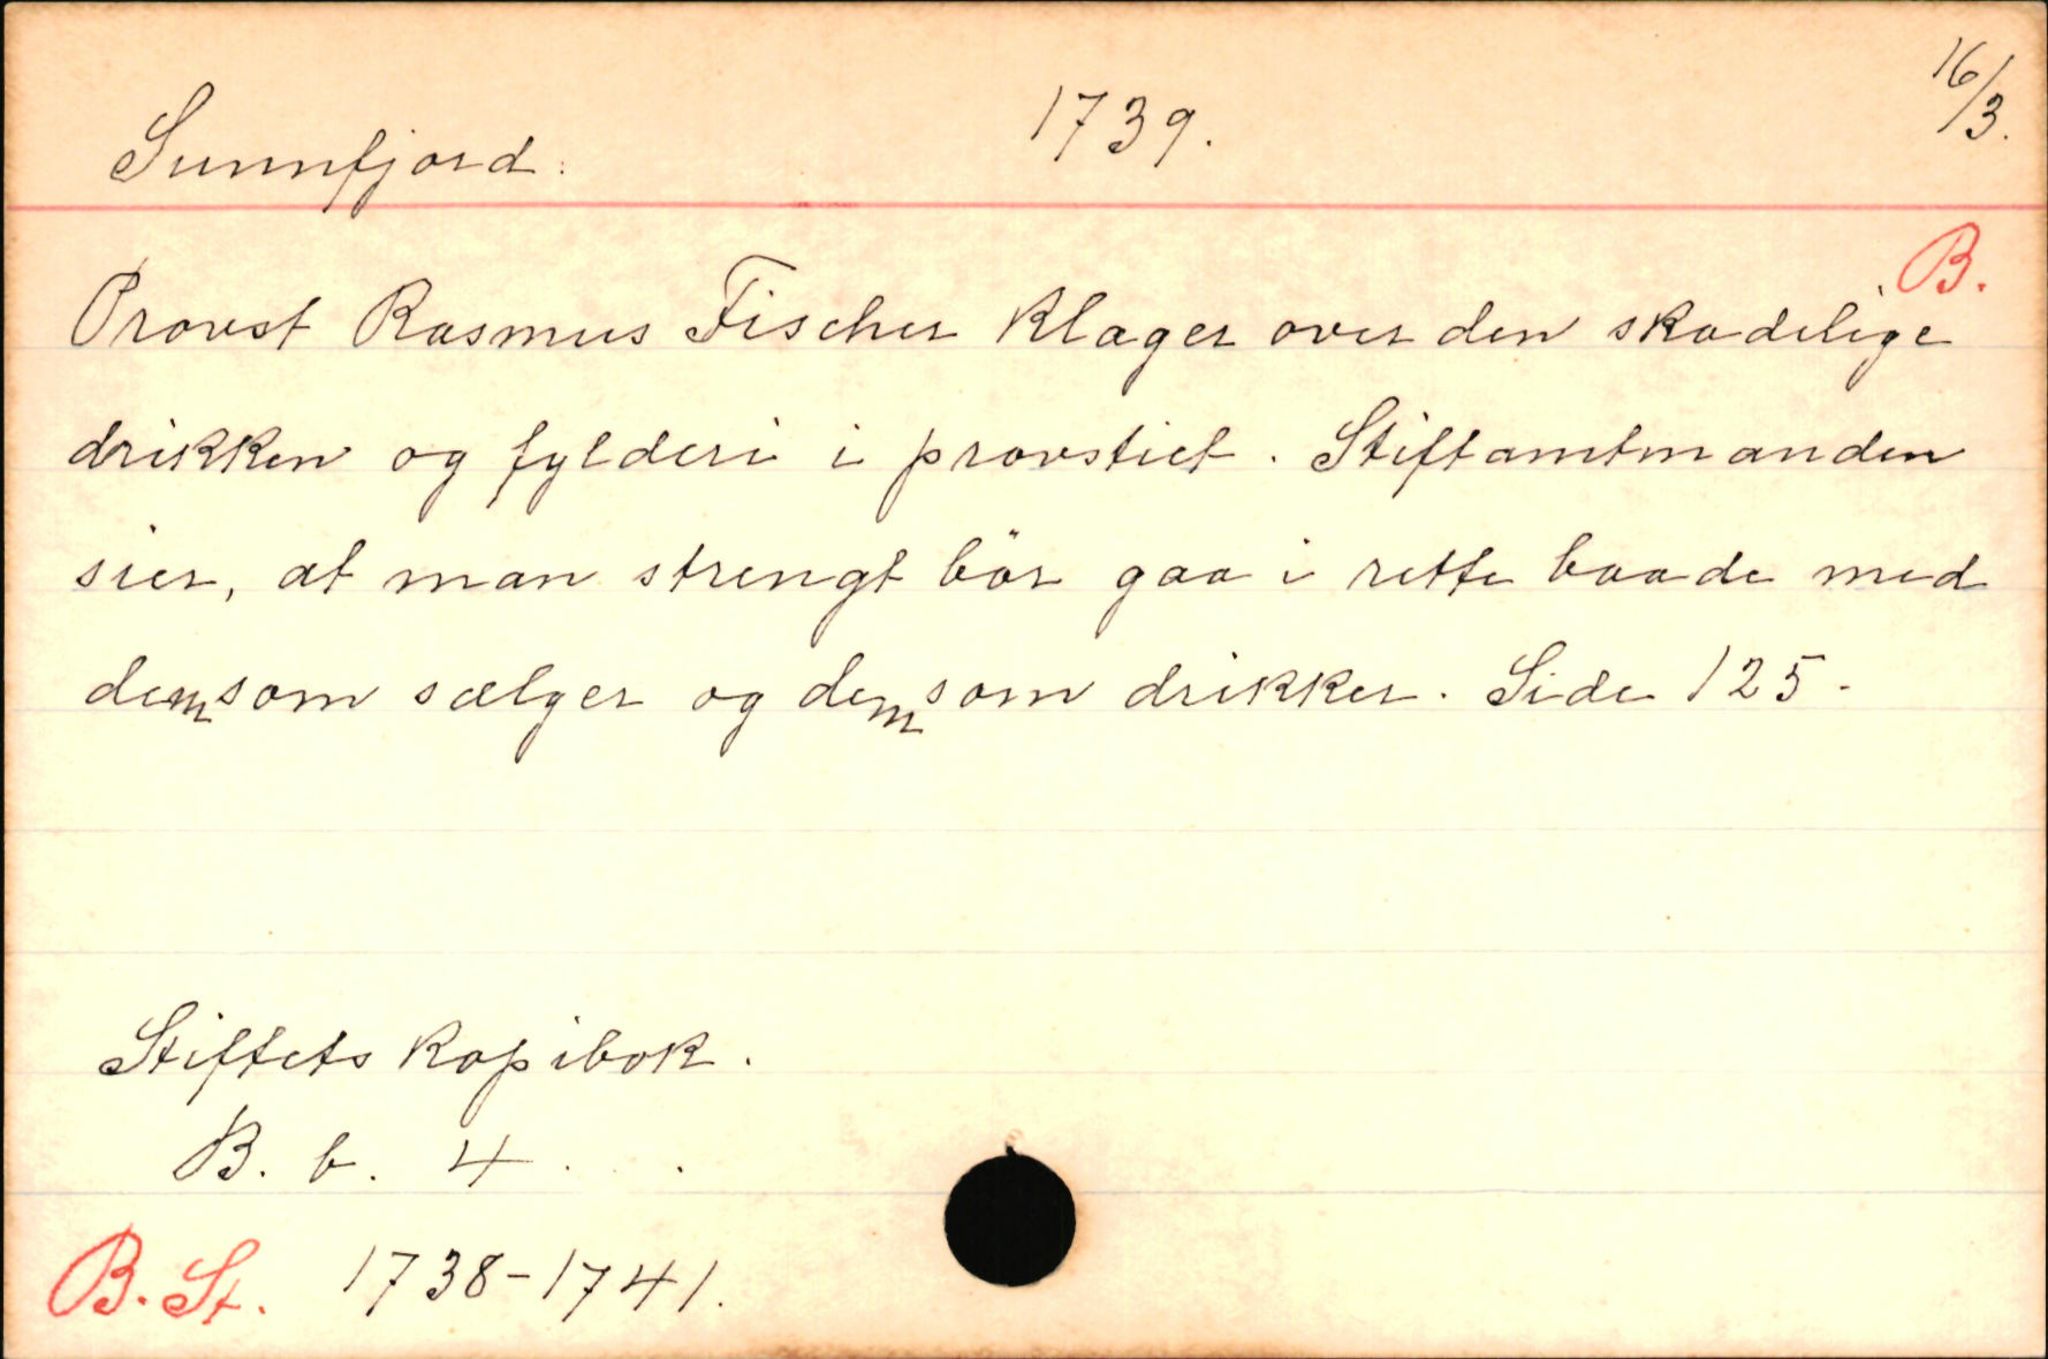 Sunnfjord. 1739. 16/3.
B.
Provst Rasmus Fischer klager over den skadelige
drikken og fylderi i provstiet. Stiftamtmanden
sier, at man strengt bör gaa i rette baade med
dem som sælger og dem som drikker. Side 125.
Stiftets kopibok.
B. b. 4.
B. St. 1738-1741.